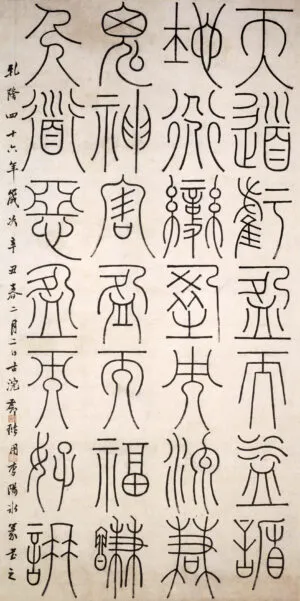 天道虧盈而益謙
地道變盈而流謙
鬼神害盈而福謙
人道惡盈而好謙
乾隆四十六年歲次辛丑春二月二日古浣用李陽冰篆書之